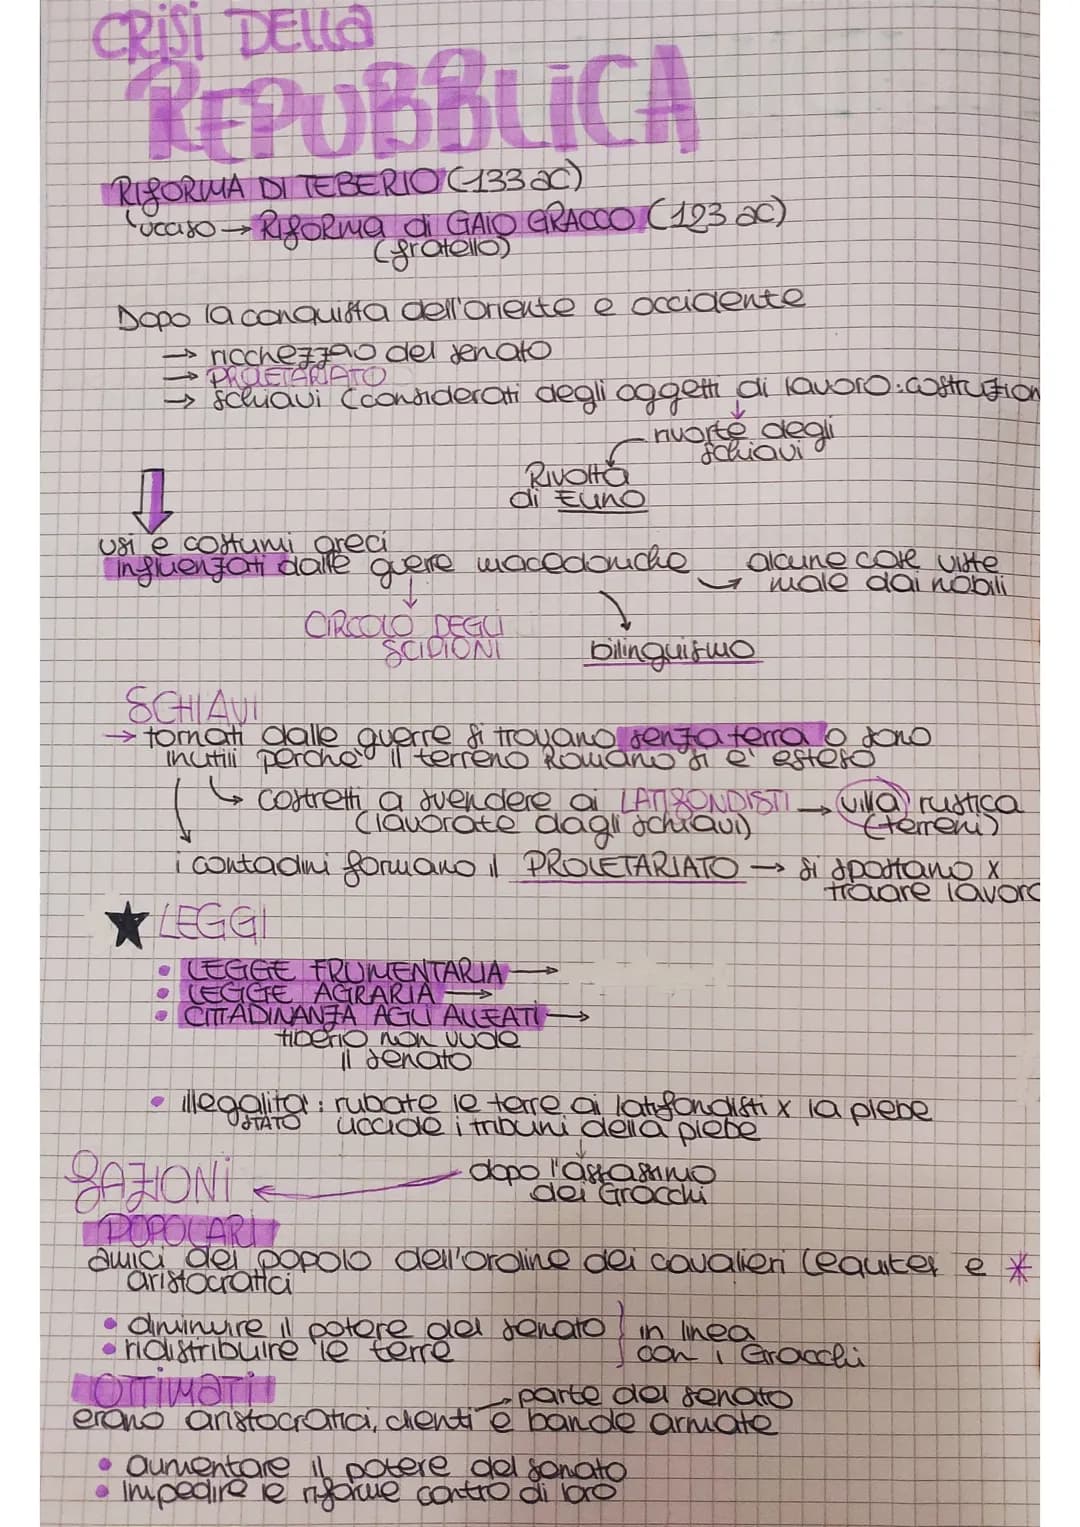 CRISI DELLA
REPUBBLICA
RIFORMA DI TEBERIO (133 aC)
ucciso → RIFORMA di GAIO GRACCO (123 aC)
(fratello)
Dopo la conquista dell'oriente e occidente
→ ricchezzao del senato
→ PROLETARIATO
→ schiavi (considerati degli oggetti di lavoro: costruzion
rivolte degli
schiavi
Rivolta
di Euno
usi e costumi greci
influenzati dalle guerre macedoniche
alcune cose viste
→ male dai nobili
CIRCOLO DEGLI
SCIPIONI
bilinguismo
SCHIAVI
→ tornati dalle guerre si trovano senza terra o sono
inutili perchè il terreno Romano si e' esteso
→ costretti a svendere ai LATIFONDISTI → villa rustica
(lavorate dagli schiavi) (terreni)
i contadini formano il PROLETARIATO → si spostano x
trovare lavoro
★ LEGGI
• LEGGE FRUMENTARIA →
• LEGGE AGRARIA →
• CITTADINANZA AGLI ALLEATI →
tiberio non vuole
il senato
• illegalita': rubate le terre ai latifondisti x la plebe
STATO uccide i tribuni della plebe
dopo l'assassinio
dei Gracchi
FAZIONI ←
POPOLARI
amici del popolo dell'ordine dei cavalieri (equites e *
aristocratici
• diminuire il potere del senato } in linea
• ridistribuire le terre } con i Gracchi
OTTIMATI
→ parte del senato
erano aristocratici, clienti e bande armate
• aumentare il potere del senato
• impedire le riforme contro di loro